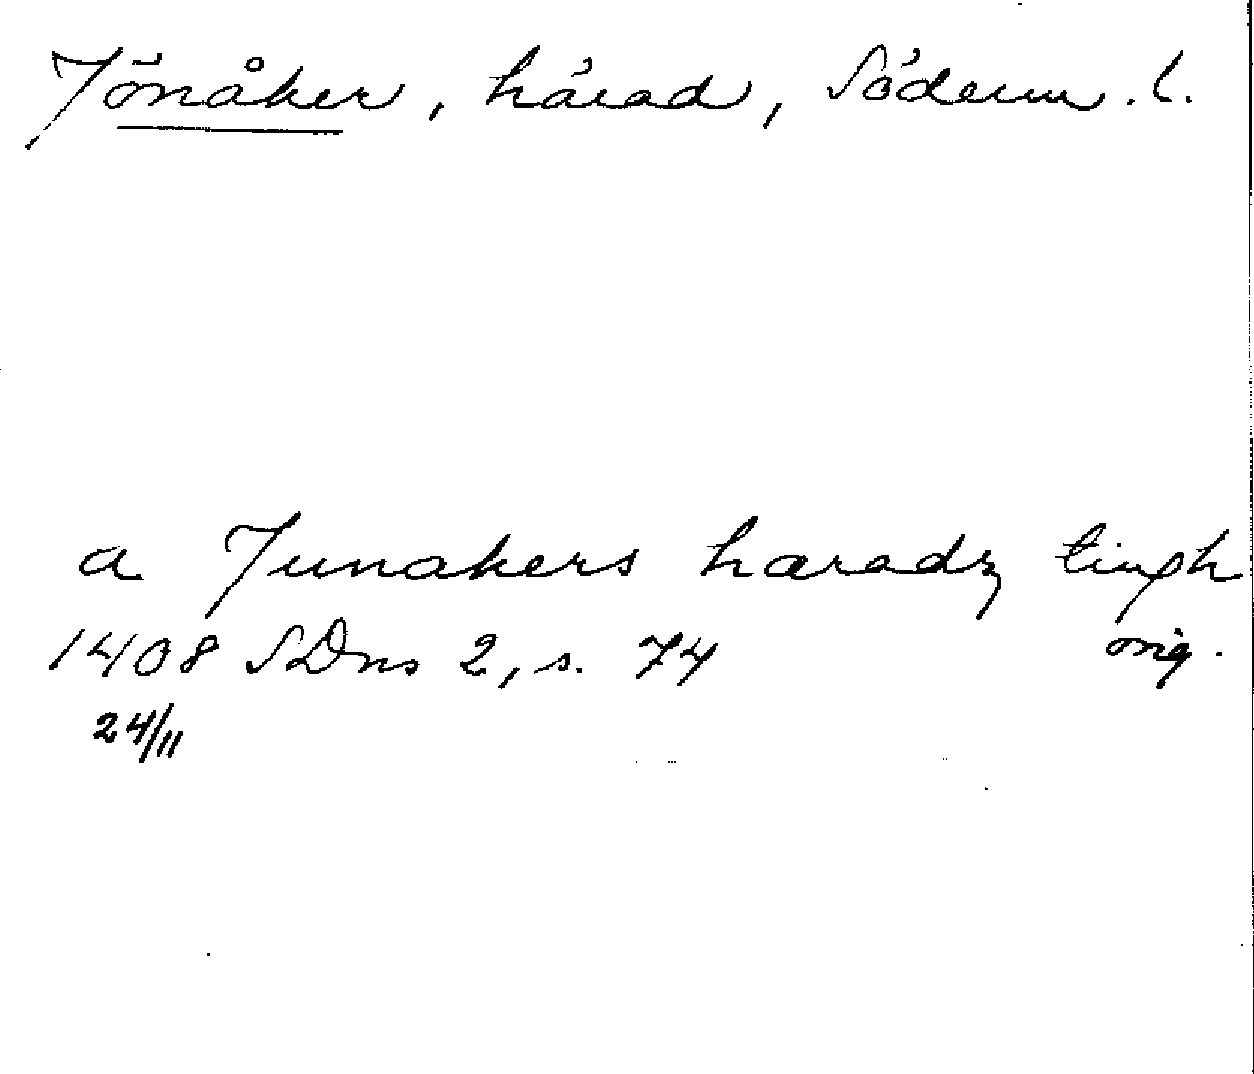 Jönåker, härad, Söderm. l.
a Junakers haradz tingh
1408 SDns 2, s. 74 orig.
24/11